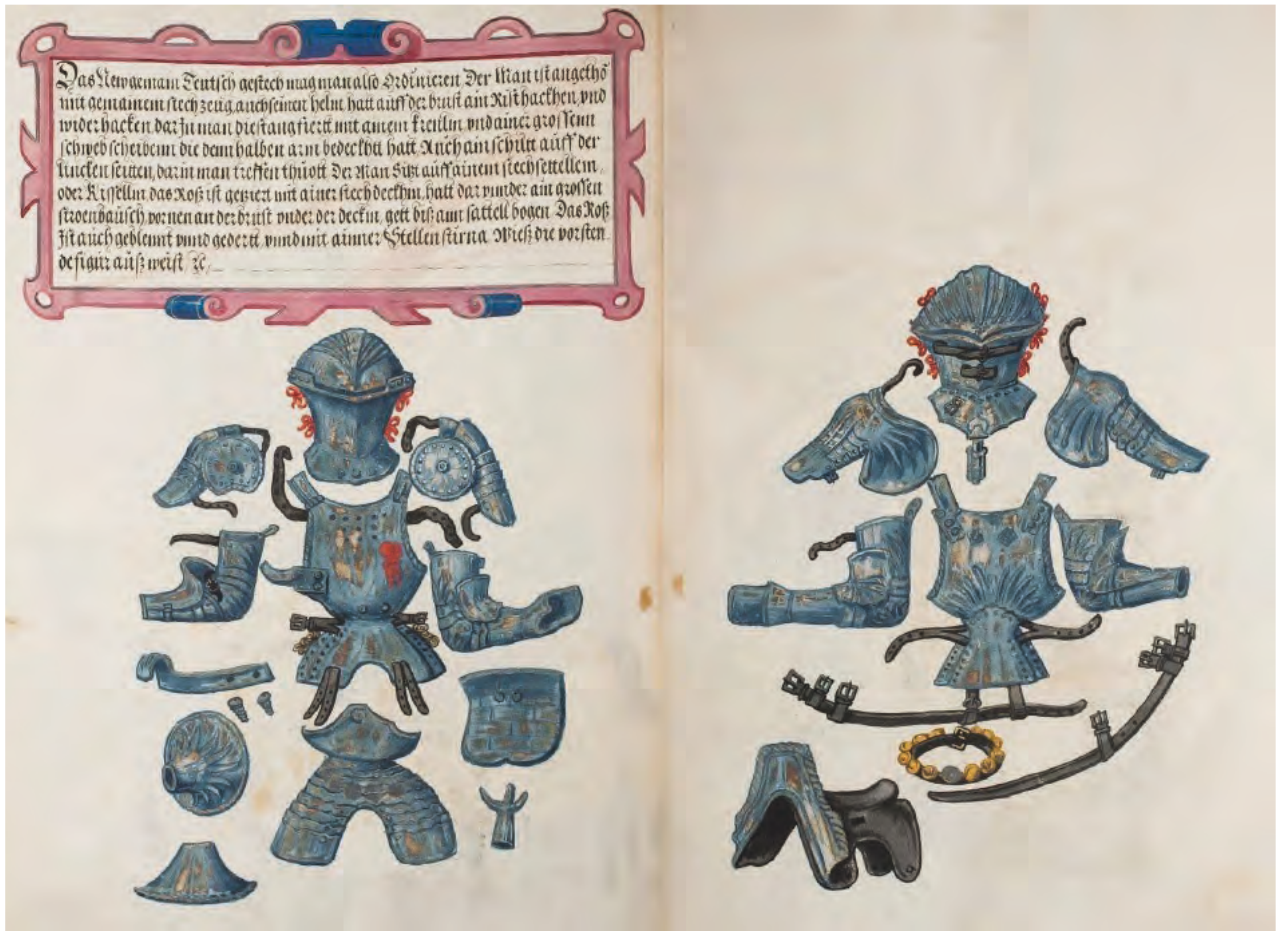 Das Newgemain Teutsch gestech mag man also Ordinieren Der Man ist angethō
mit gemainem stech zeug, auch seinen helm hatt auff der brust ain Risthackhen, vnd
wider hacken dar Jn man die stang fiertt mit ainem krenlin vnd ainer grossenn
schweb scheibenn die denn halben arm bedeckhtt hatt Auch ain schiltt auff der
lincken seitten, darin man treffen thuott Der Man Sitzt auff ainem stech settellem,
oder Kisselin das Roß ist geziert mit ainer stech deckhin, hatt dar vnnder ain grossen
stroenbausch vornen an der brust vnder der deckin, gett biß ann sattell bogen Das Roß
Jst auch geblennt vnnd gedertt vnnd mit ainner Stellen stirna Wieß die vorsten
de figur auß weist ꝛc,